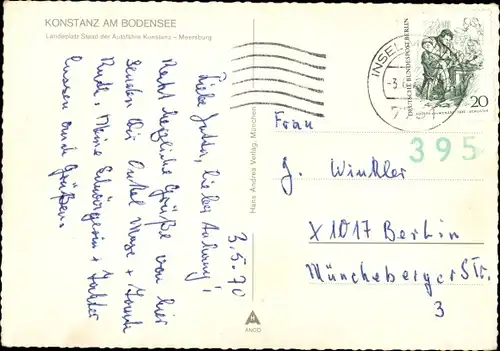 KONSTANZ AM BODENSEE
Landeplatz Staad der Autofähre Konstanz – Meersburg
3.5.70
Liebe Jutta, lieber
Recht herzliche Grüße von hier
senden Dir Onkel Max +
Rudi. Meine Schwägerin +
lassen auch Grüßen.
Hans Andres Verlag, München
ANCO
INSEL
DEUTSCHE BUNDESPOST BERLIN
20
395
Frau
J. Winkler
X1017 Berlin
Müncheberger Str.
3